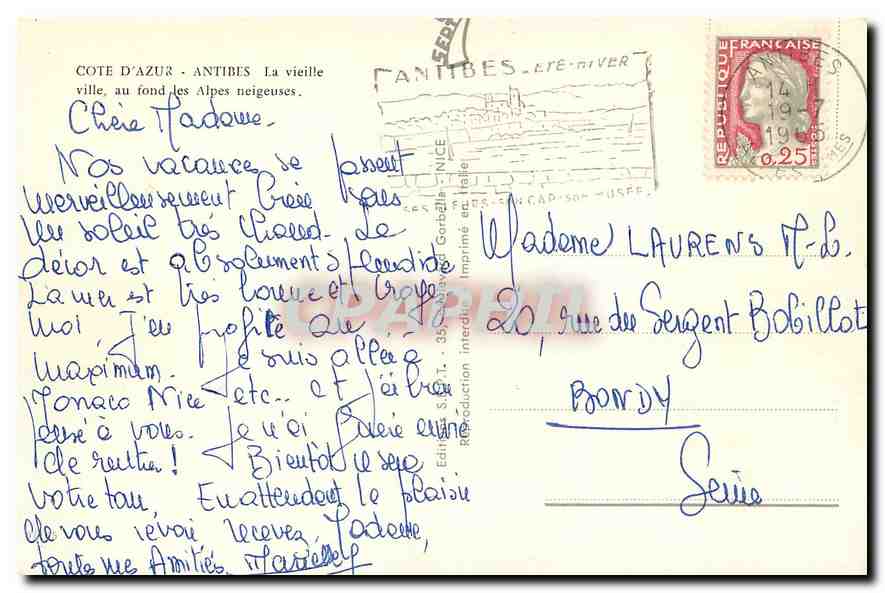 COTE D'AZUR - ANTIBES La vieille
ville, au fond les Alpes neigeuses.
Chère Madame.
Nos vacances se passent
merveilleusement bien sous
un soleil très chaud. Le
décor est absolument splendide
La mer est très bonne et, croyez
moi j'en profite au
maximum. Je suis allée à
Monaco Nice etc.. et j'ai bien
pensé à vous. Je n'ai guère envie
de rentrer! Bientôt ce sera
votre tour, En attendant le plaisir
de vous revoir recevez, Madame,
toutes mes Amitiés.
SEPT
ANTIBES - ETE - HIVER
SES FLEURS - SON CAP - SON MUSÉE
REPUBLIQUE FRANÇAISE
0,25
ANTIBES
14
19-7
Editions S.E.P.T. - 35, NICE
Reproduction interdite Imprimé en Italie
CPAPHIL
Madame LAURENS M-L.
20, rue du Sergent Bobillot
BONDY
Seine